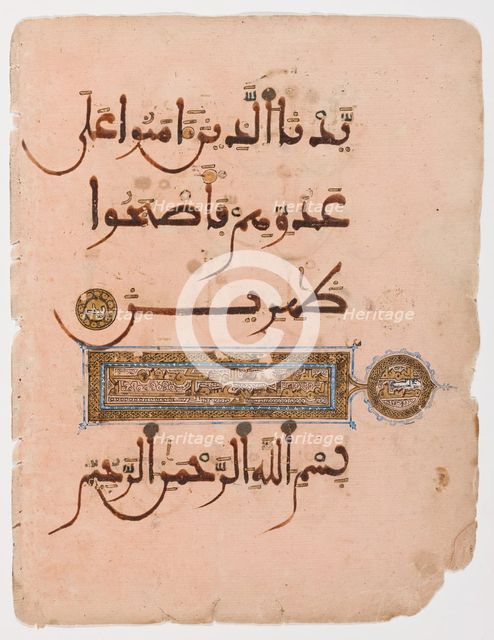 يدنا الذين امنوا على
عدوهم فأصبحوا
Heritage Heritage
ظهرين
Heritage Heritage
Heritage Heritage
بسم الله الرحمن الرحيم